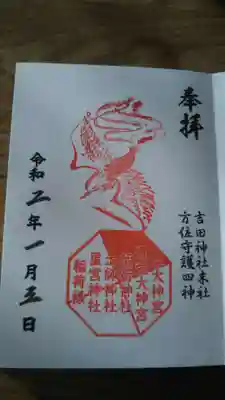 奉拝
吉田神社末社
方位守護四神
大神宮
大神宮
神社
三師神社
星宮神社
稲荷様
令和二年一月五日